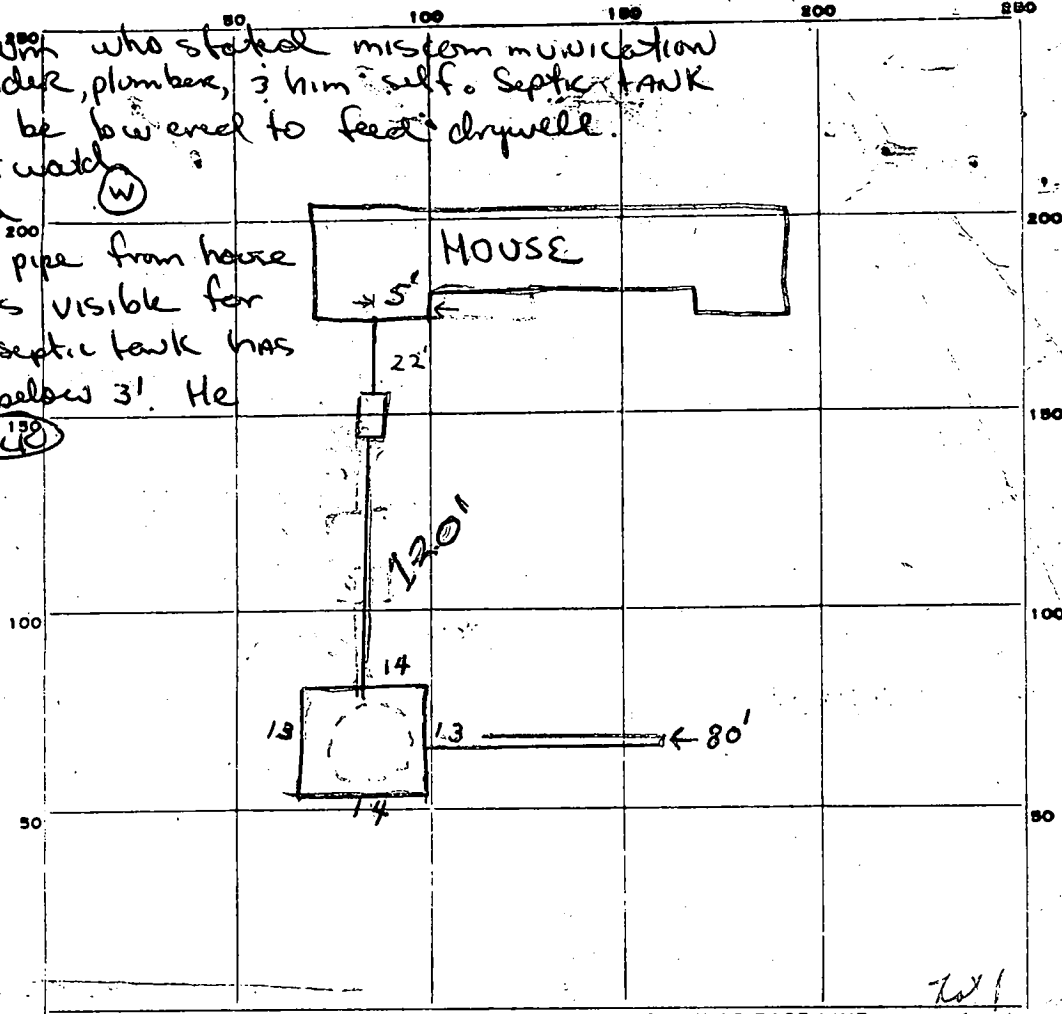 50 100 150 200 250
250
who stated miscommunication
plumber, & him self. Septic tank
be lowered to feed drywell.
watch
W
200 200
pipe from house
HOUSE
5'
visible for
septic tank has
22'
below 3'. He
150 150
120'
100 100
14
13 13 ← 80'
14
50 50
Lot 1